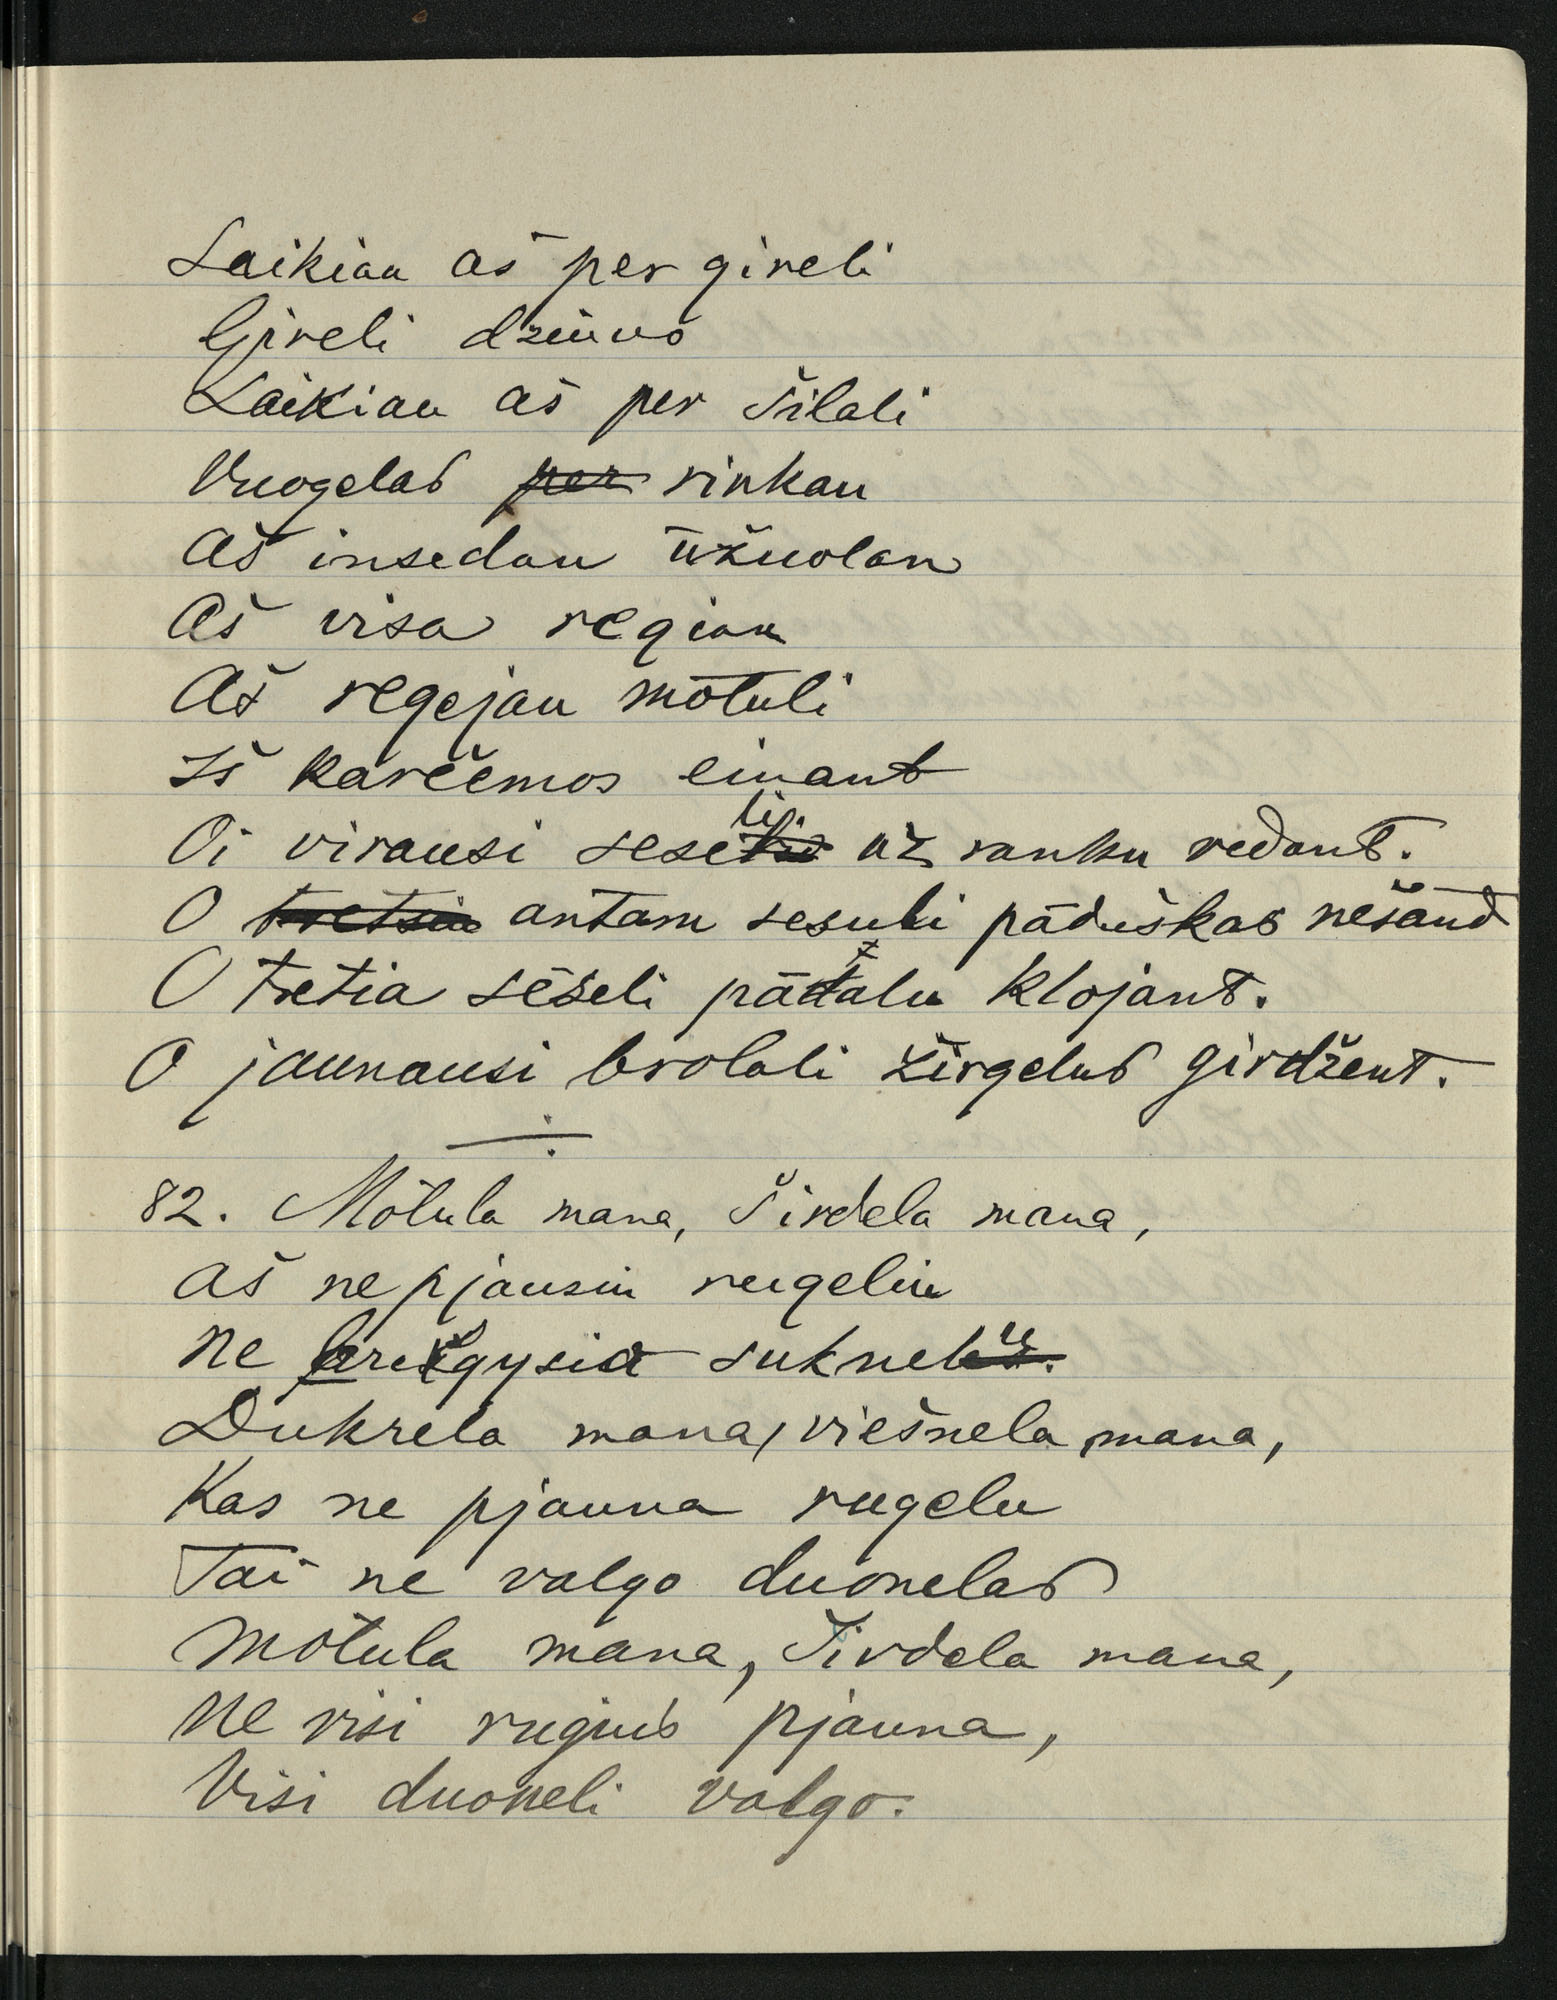 Laikiau aš per gireli
Gireli dziuvo
Laikiau aš per šilali
Vuogelas per rinkau
Aš insedau ūžuolan
Aš visa regiau
Aš regejau mōtuli
Iš karčemos einant
Oi virausi seseli už ranku vedant.
O antam sesuli pāduškas nešānt
O tretia sēseli pātalu klojant.
O jaunausi brolali žirgelus girdžent.
82. Mōtula mana, širdela mana,
aš ne pjausiu rugeliu
Ne suknelu
Dukrela mana, viešnela mana,
Kas ne pjauna rugelu
Tai ne valgo duonelas
Mōtula mana, širdela mana,
Ne visi rugius pjauna,
Visi duoneli valgo.